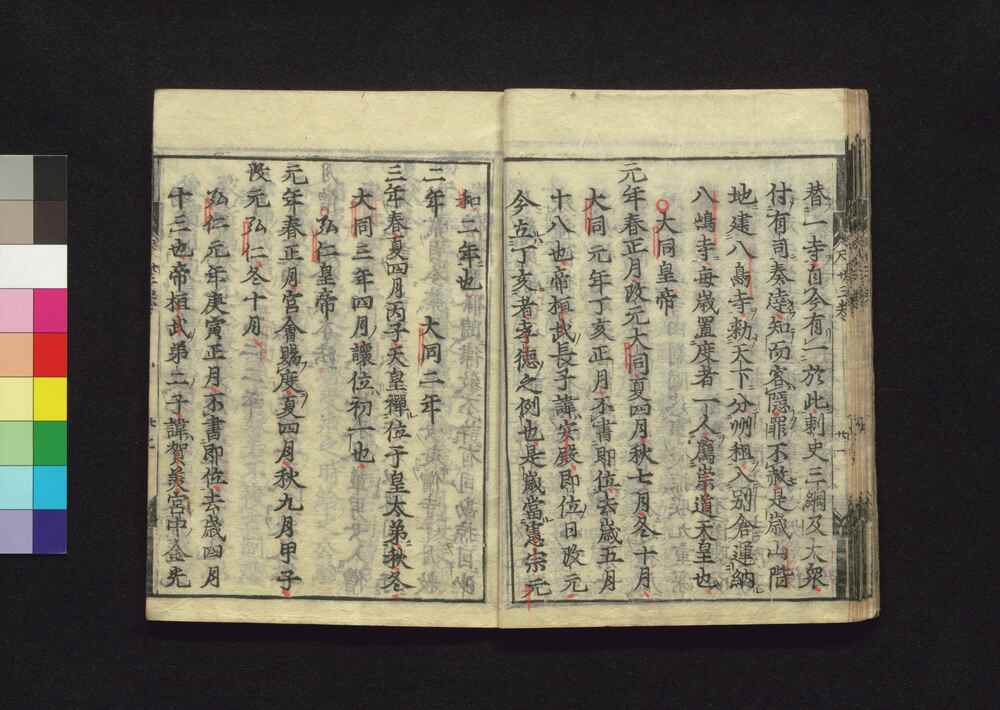 替一寺自今有一於此刺史三綱及大衆
付有司奏達知而容隱罪不赦是歳山階
地建八嶋寺勅天下分州租入別倉運納
八嶋寺每歳置度者一人薦崇道天皇也
大同皇帝
元年春正月改元大同夏四月秋七月冬十月
大同元年丁亥正月不書即位去歳五月
十八也帝桓武長子諱安殿即位日改元
今立丁亥者孝德之例也是歳當憲宗元
和二年也
二年 大同二年
三年春夏四月丙子天皇禪位于皇太弟秋冬
大同三年四月讓位初一也
弘仁皇帝
元年春正月宮會賜度夏四月秋九月甲子
改元弘仁冬十月
弘仁元年庚寅正月不書即位去歳四月
十三也帝桓武第二子諱賀美宮中金先